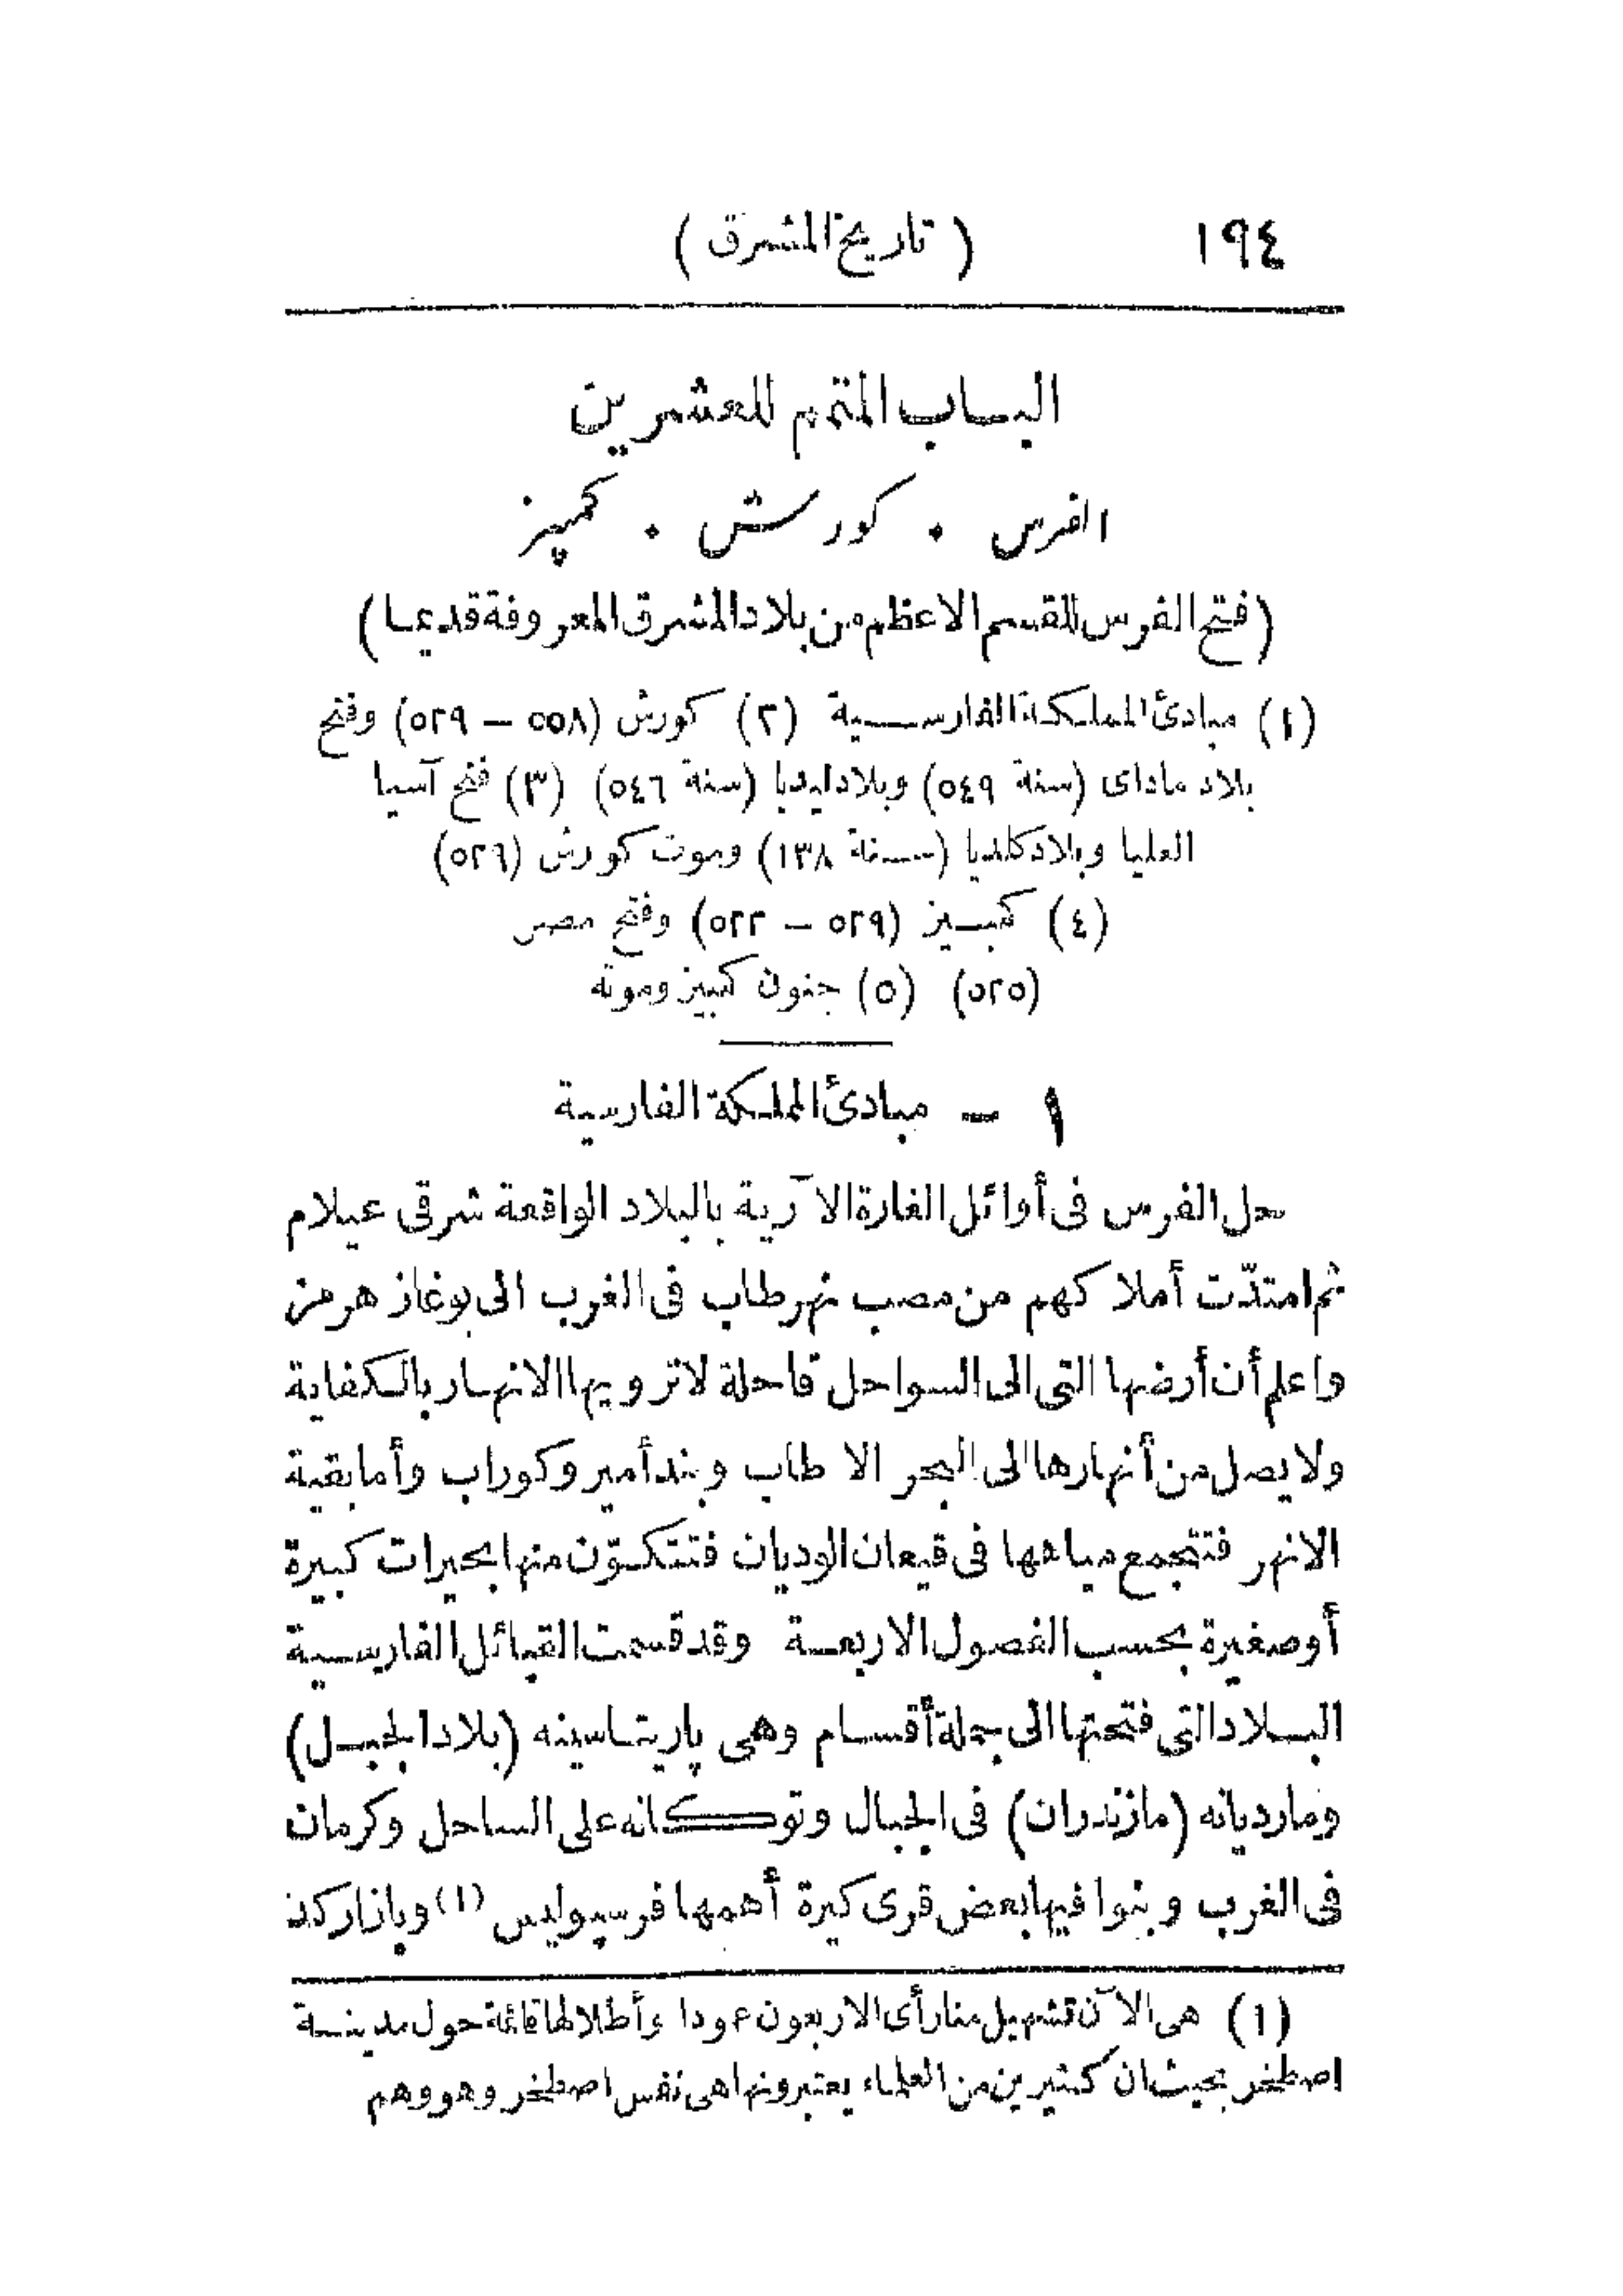 ١٩٤ ( تاريخ المشرق )
الباب المتمم للعشرين
الفرس . كورش . كمبيز
(فتح الفرس للقسم الاعظم من بلاد المشرق المعروفة قديما)
(١) مبادئ المملكة الفارسية (٢) كورش (٥٥٨ – ٥٢٩) وفتح
بلاد ماداى (سنة ٥٤٩) وبلاد ليديا (سنة ٥٤٦) (٣) فتح آسيا
العليا وبلاد كلديا (سنة ١٣٨) وموت كورش (٥٢٦)
(٤) كمبيز (٥٢٩ – ٥٢٢) وفتح مصر
(٥٢٥) (٥) جنون كمبيز وموته
١ – مبادئ المملكة الفارسية
حل الفرس فى أوائل الغارة الآرية بالبلاد الواقعة شرقى عيلام
ثم امتدّت أملاكهم من مصب نهر طاب فى الغرب الى بوغاز هرمز
واعلم أن أرضها التى الى السواحل قاحلة لا ترويها الانهار بالكفاية
ولا يصل من أنهارها الى البحر الا طاب وبندأمير وكوراب وأما بقية
الانهر فتتجمع مياهها فى قيعان الوديان فتتكوّن منها بحيرات كبيرة
أو صغيرة بحسب الفصول الاربعة وقد قسمت القبائل الفارسية
البلاد التى فتحتها الى جملة أقسام وهى پاريتاسينه (بلاد الجبل)
ومارديانه (مازندران) فى الجبال وتوكانه على الساحل وكرمان
فى الغرب وبنوا فيها بعض قرى كبيرة أهمها فرسپوليس (١) وبازاركد
(١) هى الآن تشهيل منار أى الاربعون عمودا وأطلالها قائمة حول مدينة
اصطخر بحيث ان كثيرين من العلماء يعتبرونها هى نفس اصطخر وهو وهم